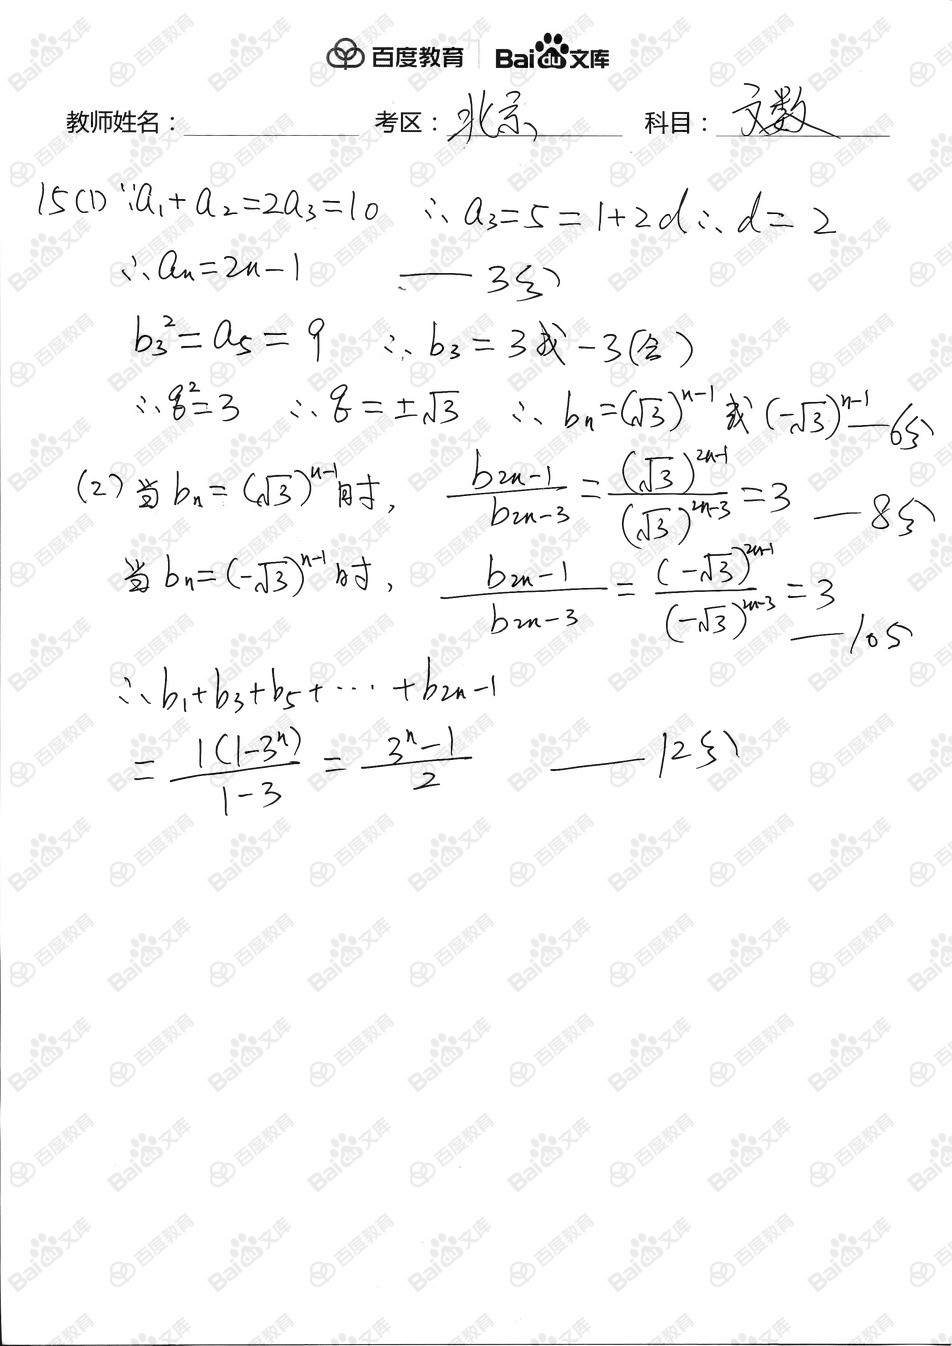 百度教育 Bai文库
教师姓名： 考区：北京 科目：文数
15(1) ∵a₁+a₂=2a₃=10 ∴a₃=5=1+2d ∴d=2
∴aₙ=2n-1 —3分
b₃²=a₅=9 ∴b₃=3或-3(舍)
∴q²=3 ∴q=±√3 ∴bₙ=(√3)ⁿ⁻¹或(-√3)ⁿ⁻¹—6分
(2)当bₙ=(√3)ⁿ⁻¹时, b₂ₙ₋₁/b₂ₙ₋₃=(√3)²ⁿ⁻¹/(√3)²ⁿ⁻³=3 —8分
当bₙ=(-√3)ⁿ⁻¹时, b₂ₙ₋₁/b₂ₙ₋₃=(-√3)²ⁿ⁻¹/(-√3)²ⁿ⁻³=3
—10分
∴b₁+b₃+b₅+…+b₂ₙ₋₁
=1(1-3ⁿ)/1-3=3ⁿ-1/2 —12分